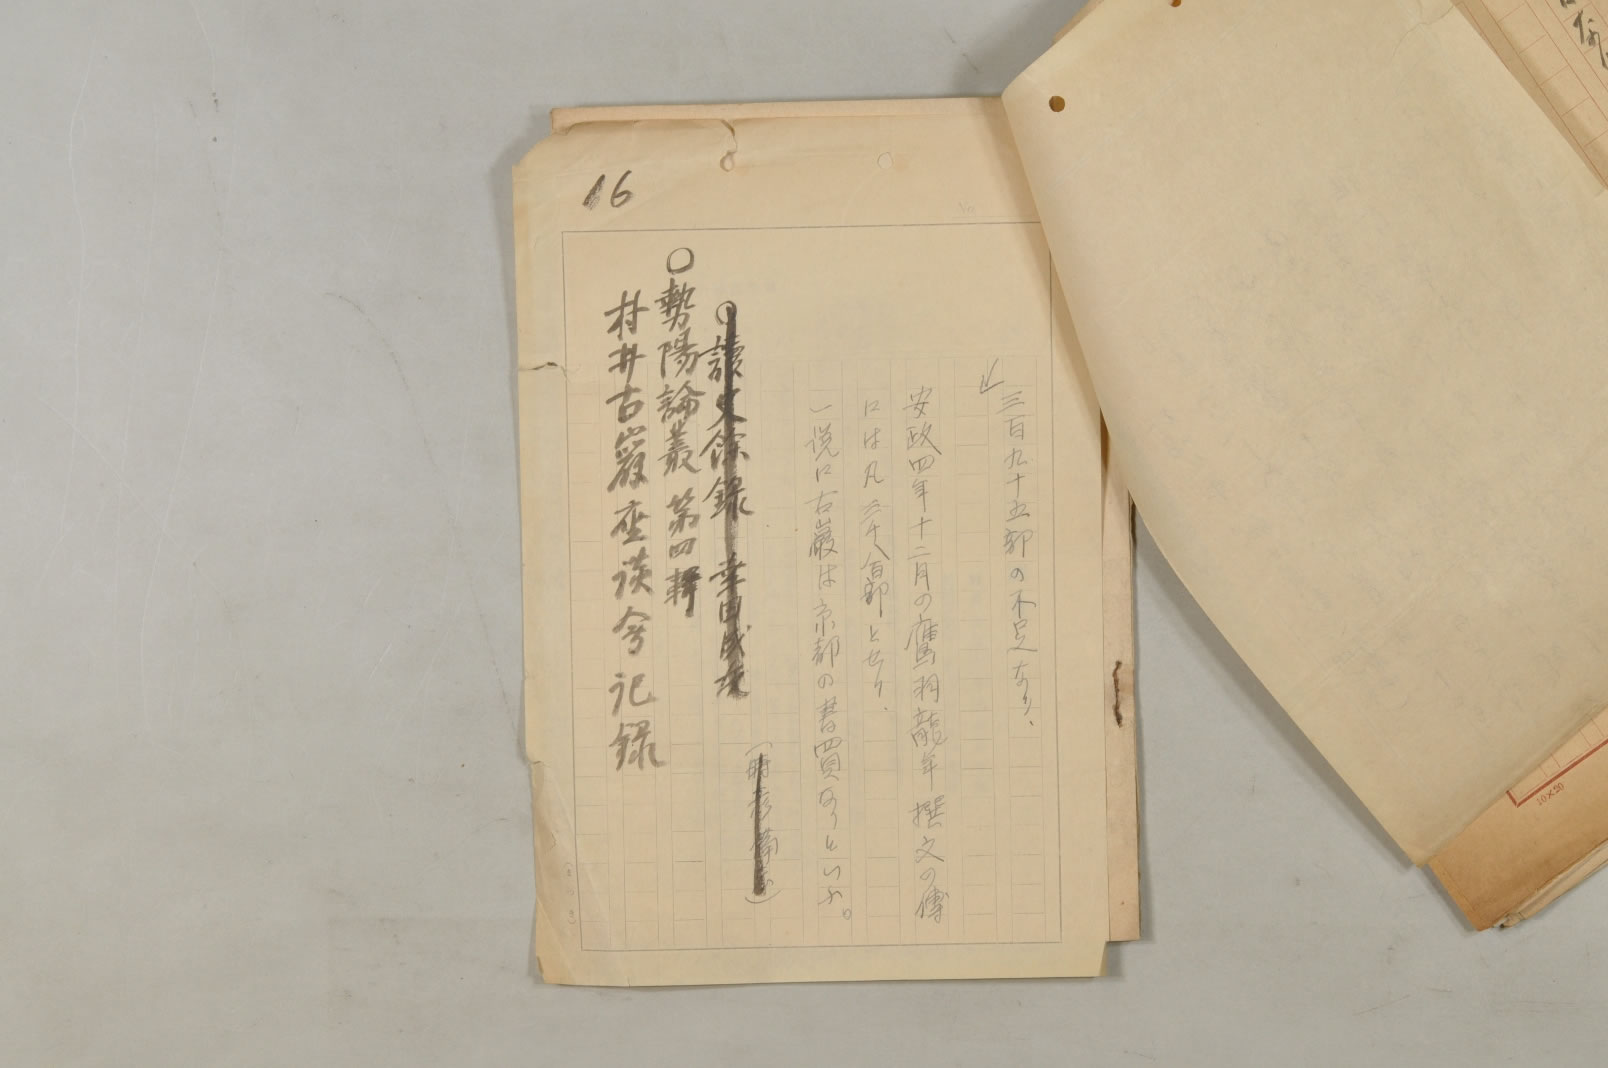 16
三百九十五部の不足なり、
安政四年十二月の鷹羽龍年撰文の傳
には凡三千八百部とせり、
一説に古巖は京都の書買なりといふ。
○讀史餘録 幸田成友
○勢陽論叢 第四輯
村井古巖座談会記録
10×20